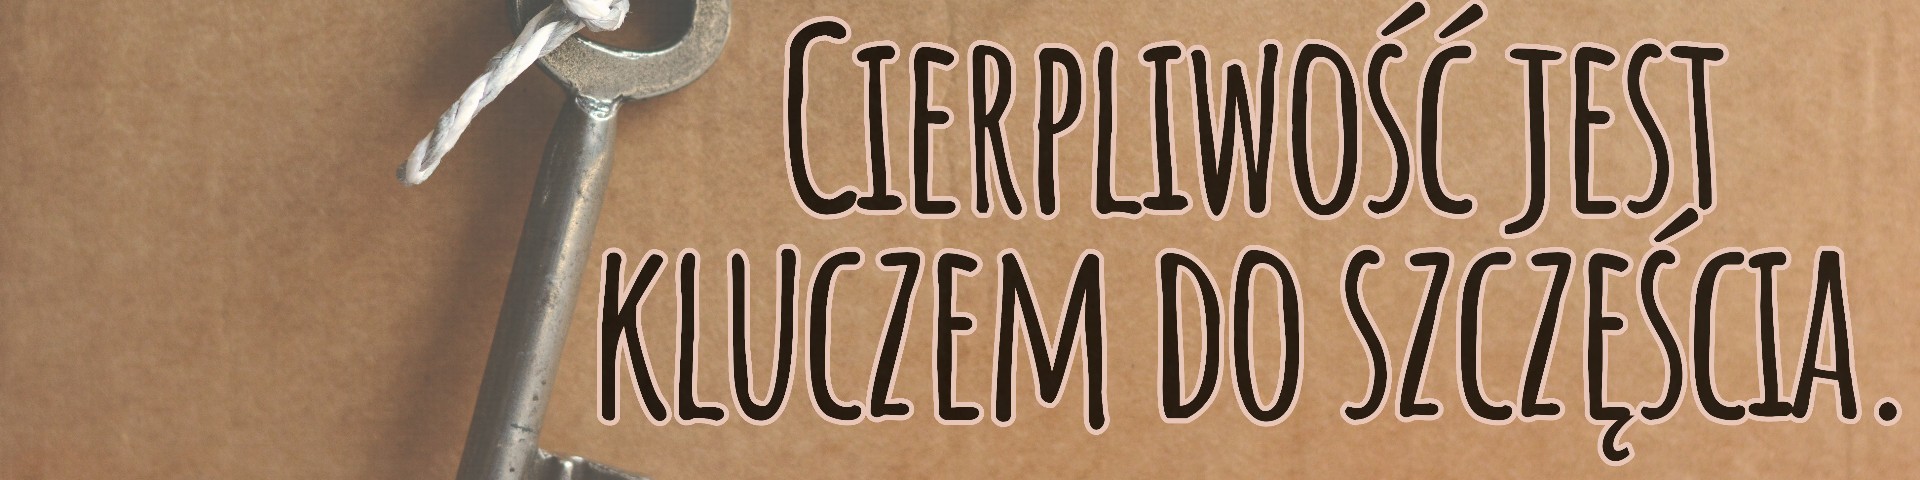 Cierpliwość jest
kluczem do szczęścia.